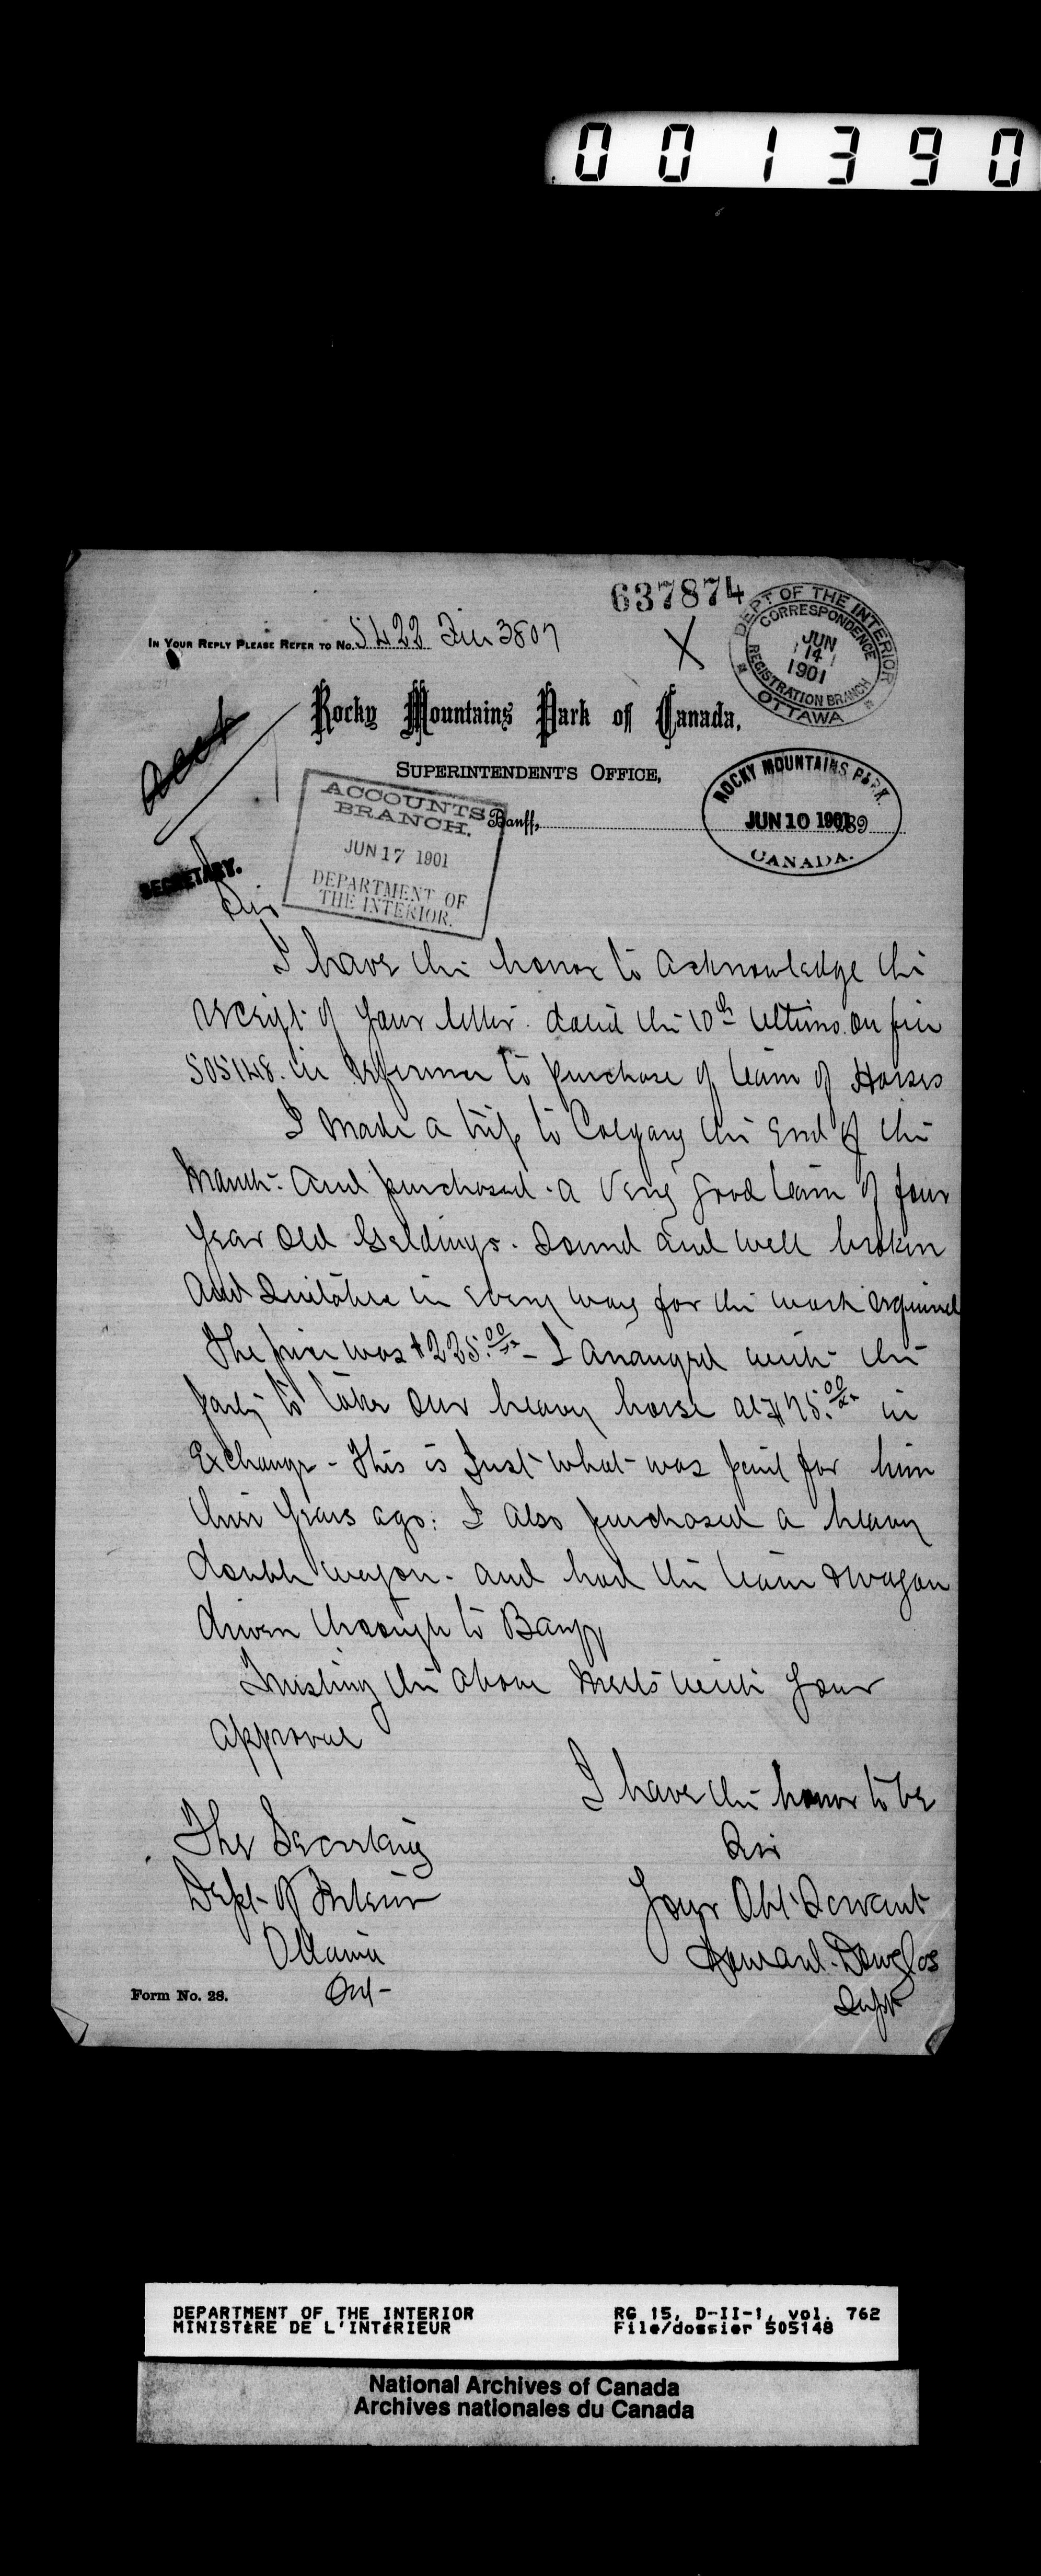 001390
637874
IN YOUR REPLY PLEASE REFER TO No. 5422 File 3807
X
DEPT OF THE INTERIOR
CORRESPONDENCE
JUN
14
1901
REGISTRATION BRANCH
OTTAWA
Rocky Mountains Park of Canada,
SUPERINTENDENT'S OFFICE,
Acct
ACCOUNTS
BRANCH.
JUN 17 1901
DEPARTMENT OF
THE INTERIOR.
Banff, 189
ROCKY MOUNTAINS PARK.
JUN 10 1901
CANADA.
SECRETARY.
Sir
I have the honor to acknowledge the
receipt of your letter dated the 10th Ultimo on file
505148. in reference to purchase of team of Horses
I made a trip to Calgary the end of the
month. And purchased a very good team of four
year old Geldings. Sound and well broken
And Suitable in every way for the work required
The price was $225.00 - I arranged with the
party to take our heavy horse at $75.00 in
Exchange - This is Just what was paid for him
three years ago: I also purchased a heavy
double wagon. and had the team & wagon
driven through to Banff
Trusting the above meets with your
approval
I have the honor to be
Sir
Your Obt Servant
Howard Douglas
Supt
The Secretary
Dept of Interior
Ottawa
Ont-
Form No. 28.
DEPARTMENT OF THE INTERIOR
MINISTÈRE DE L'INTÉRIEUR
RG 15, D-II-1, vol. 762
File/dossier 505148
National Archives of Canada
Archives nationales du Canada